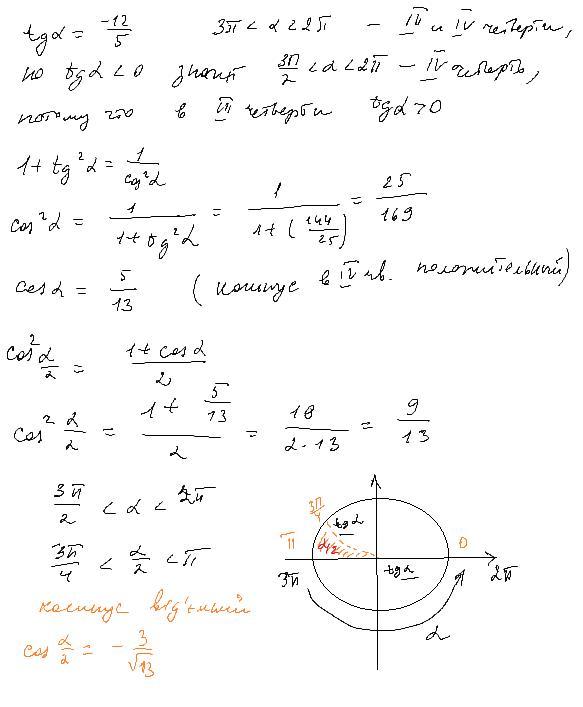 tgα = -12/5   3π < α < 2π – III и IV четверти,
но tgα < 0 значит 3π/2 < α < 2π – IV четверть,
потому что в III четверти tgα > 0
1 + tg²α = 1/cos²α
cos²α = 1/(1+tg²α) = 1/(1+(144/25)) = 25/169
cosα = 5/13 (косинус в IV чв. положительный)
cos² α/2 = (1+cosα)/2
cos² α/2 = (1+5/13)/2 = 18/(2·13) = 9/13
3π/2 < α < 2π
3π/4 < α/2 < π
косинус від'ємний
cos α/2 = - 3/√13
3π/4
tgα
π
α/2
0
3π
tgα
2π
α